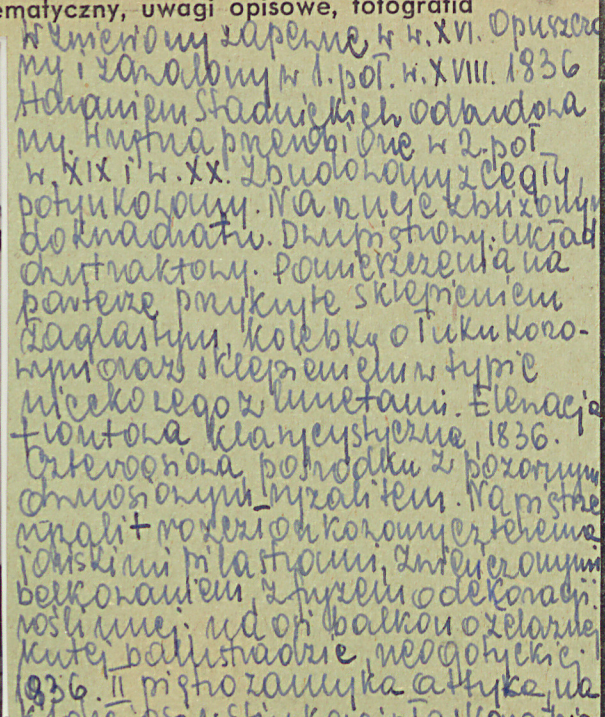 ematyczny, uwagi opisowe, fotografia
Wzniesiony zapewne w w. XVI. Opuszczo
ny i zawalony w 1. poł. w. XVIII. 1836
staraniem Stadnickich odbudowa
ny. Wnętrza przerobione w 2. poł
w. XIX i w. XX. Zbudowany z cegły,
potynkowany. Na rzucie zbliżonym
do kwadratu. Dwupiętrowy, układ
dwutraktowy. Pomieszczenia na
parterze przykryte sklepieniem
żaglastym, kolebką o łuku koszo-
wym oraz sklepieniem w typie
nieckowego z lunetami. Elewacja
frontowa klasycystyczna, 1836.
Czteroosiowa, pośrodku z pozornym
dwuosiowym ryzalitem. Na piętrze
ryzalit rozczłonkowany czterema
jońskimi pilastrami, zwieńczonymi
belkowaniem, z fryzem o dekoracji
roślinnej; na osi balkon o żelaznej
kutej balustradzie neogotyckiej
1836. II piętro zamyka attyka, na